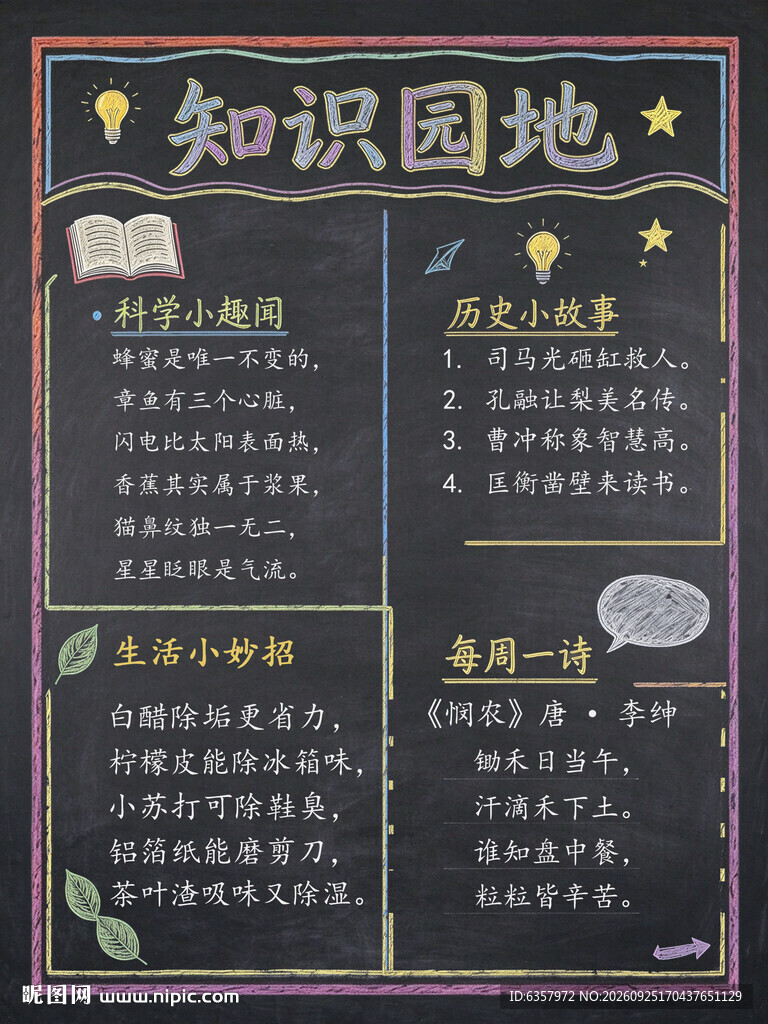 知识园地
科学小趣闻
蜂蜜是唯一不变的，
章鱼有三个心脏，
闪电比太阳表面热，
香蕉其实属于浆果，
猫鼻纹独一无二，
星星眨眼是气流。
历史小故事
1. 司马光砸缸救人。
2. 孔融让梨美名传。
3. 曹冲称象智慧高。
4. 匡衡凿壁来读书。
生活小妙招
白醋除垢更省力，
柠檬皮能除冰箱味，
小苏打可除鞋臭，
铝箔纸能磨剪刀，
茶叶渣吸味又除湿。
每周一诗
《悯农》唐 · 李绅
锄禾日当午，
汗滴禾下土。
谁知盘中餐，
粒粒皆辛苦。
昵图网 www.nipic.com
ID:6357972 NO:20260925170437651129